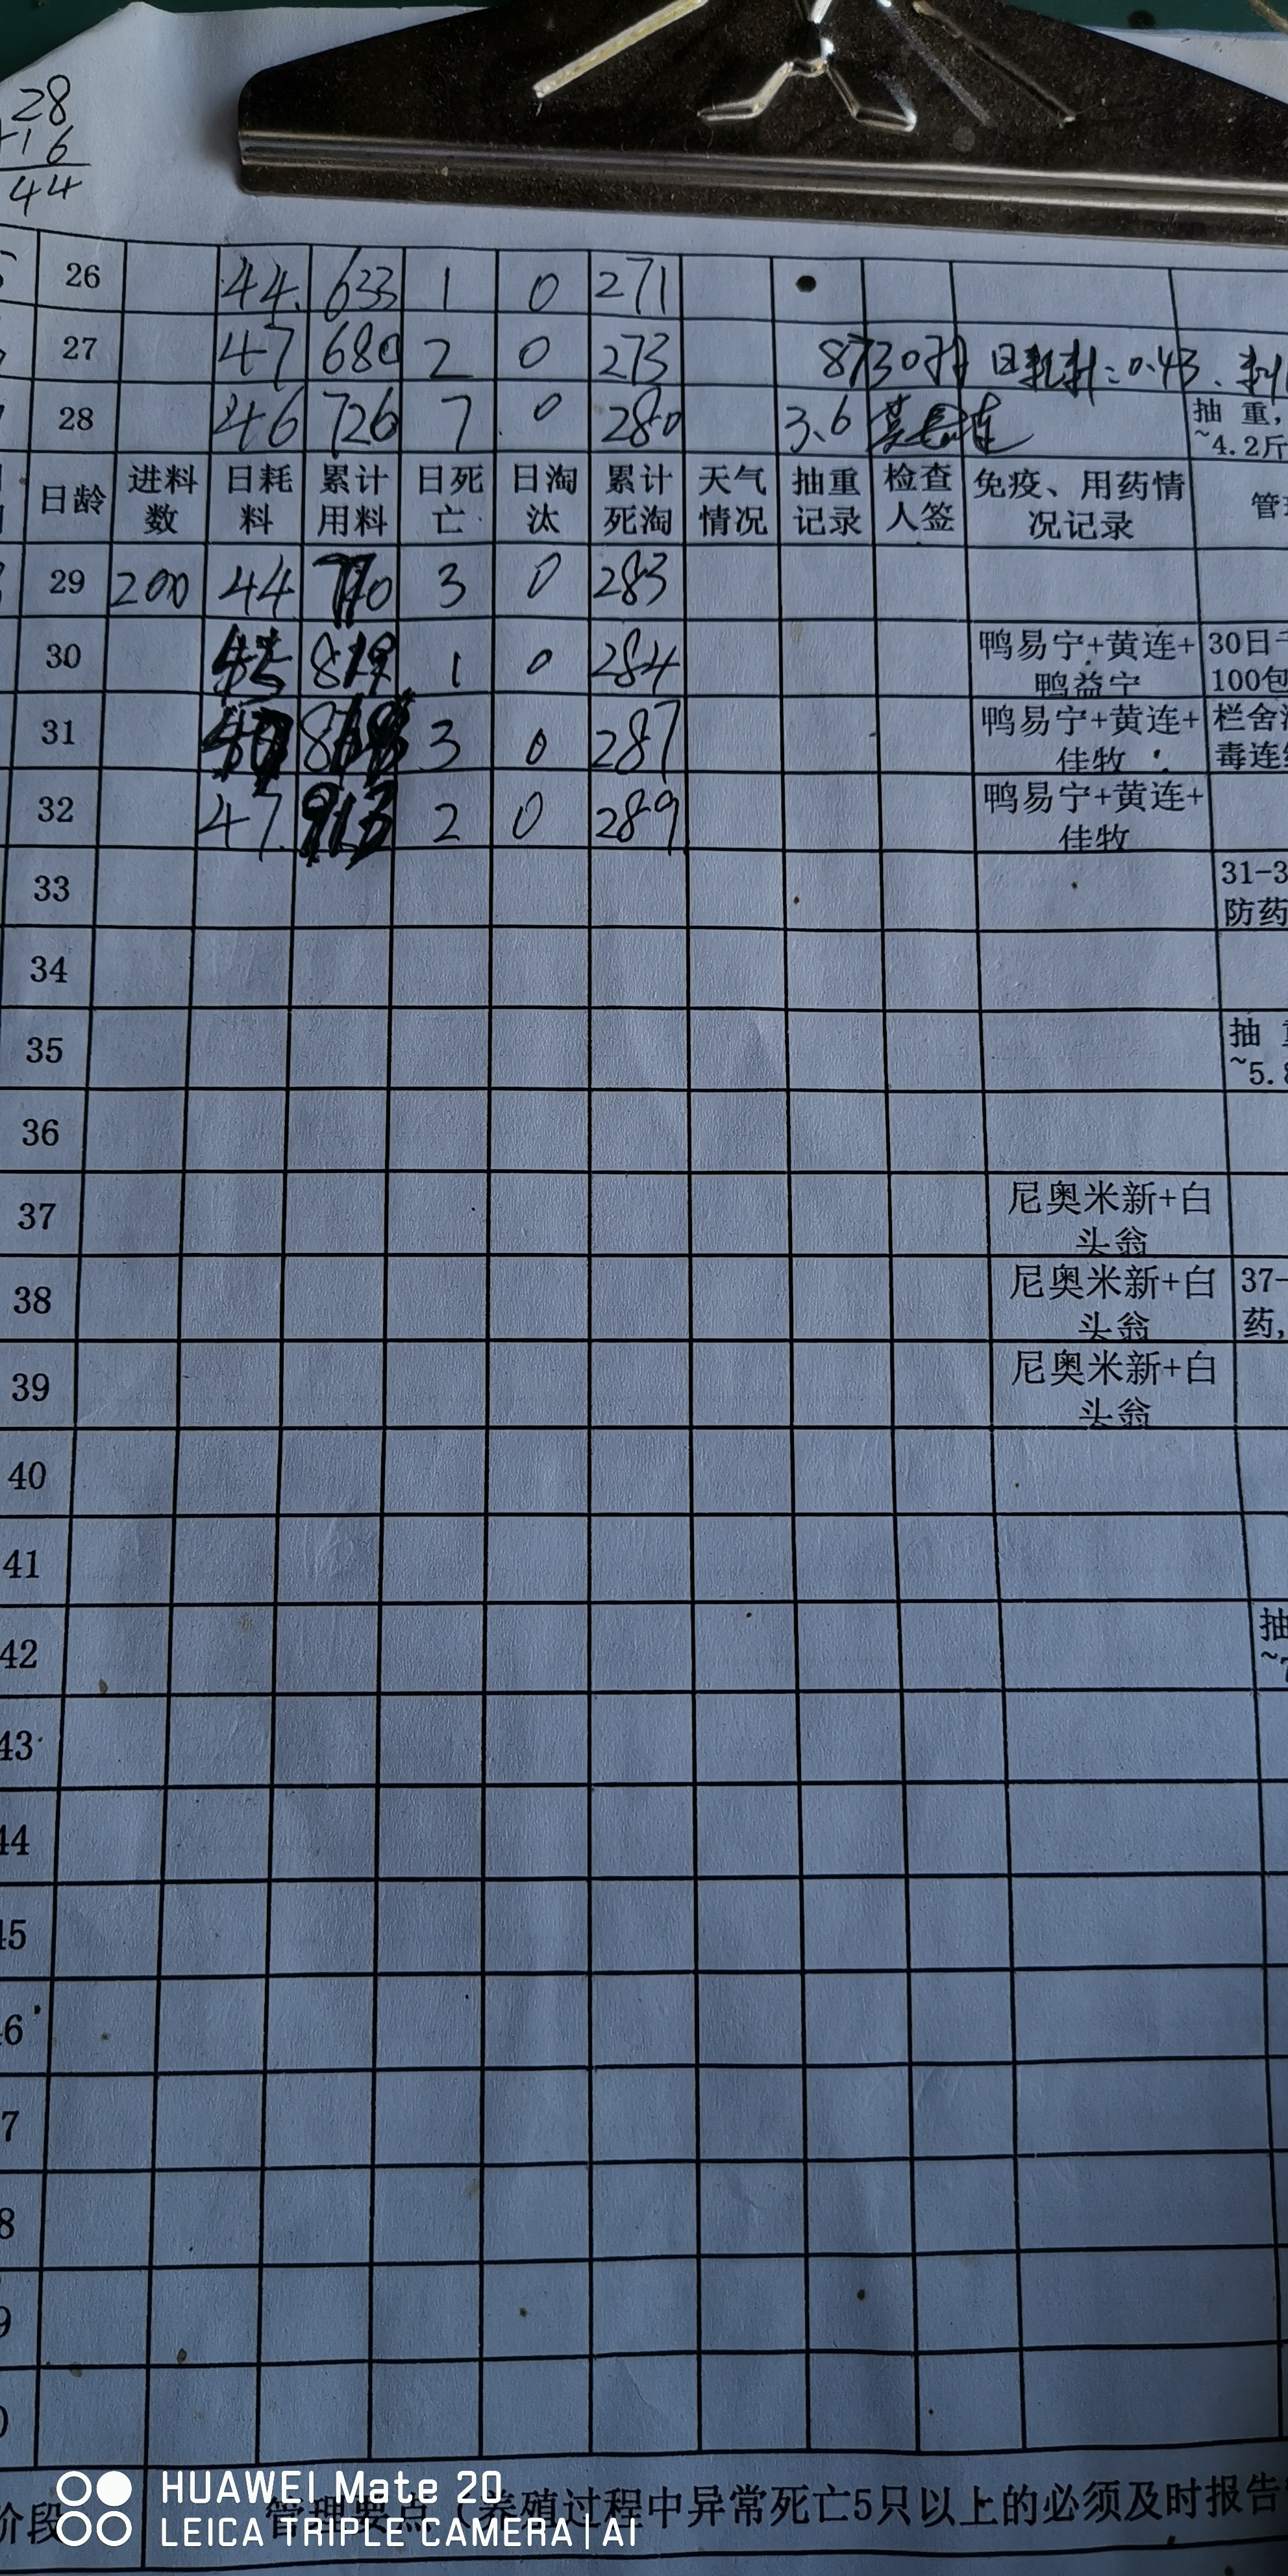 28
+16
44
26 44. 633 1 0 271
27 47 680 2 0 273 8730 日耗料:0.43、料
28 46 726 7 0 280 3.6 抽 重,
~4.2斤
日龄 进料数 日耗料 累计用料 日死亡 日淘汰 累计死淘 天气情况 抽重记录 检查人签 免疫、用药情况记录
29 200 44 770 3 0 283
30 1 0 284 鸭易宁+黄连+鸭益宁 30日
100包
31 3 0 287 鸭易宁+黄连+佳牧 栏舍
毒连
32 47. 913 2 0 289 鸭易宁+黄连+佳牧
33 31-3
防药
34
35 抽
~5.8
36
37 尼奥米新+白头翁
38 尼奥米新+白头翁 37-
药,
39 尼奥米新+白头翁
40
41
42 抽
~7
43
44
45
6
7
8
9
0
阶段 管理要点（养殖过程中异常死亡5只以上的必须及时报告
HUAWEI Mate 20
LEICA TRIPLE CAMERA | AI